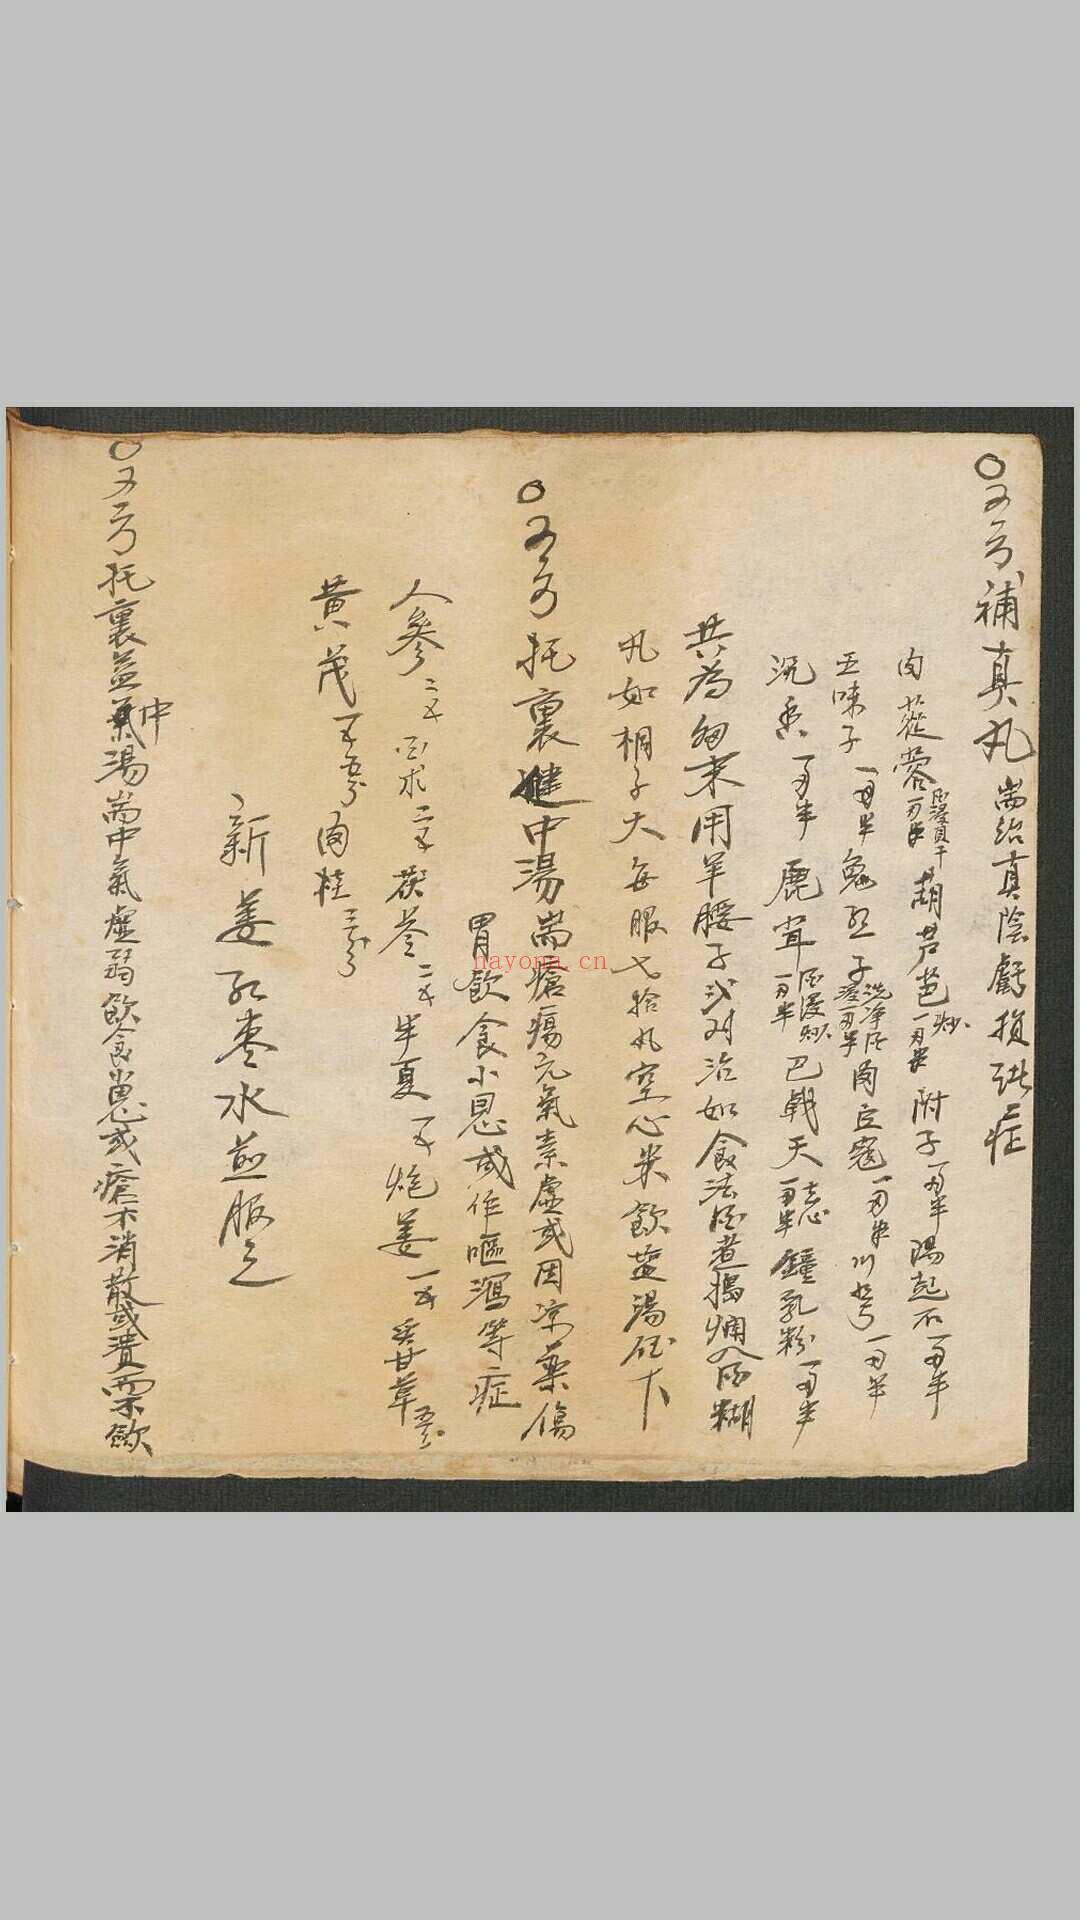 ○又方補真丸耑治真陰虧損諸症
肉蓯蓉一兩半酒浸焙干葫芦芭一兩半炒附子一兩半陽起石一兩半
五味子一兩半兔絲子洗净酒浸一兩半肉豆蔻一兩半川芎一兩半
沉香一兩半鹿茸一兩半酒浸炒巴戟天一兩半去心鐘乳粉一兩半
共為細末用羊腰子弍对治如食法酒煮搗爛入酒糊
丸如桐子大每服七拾丸空心米飲盐湯任下
○又方托裏健中湯耑瘡瘍元氣素虛或因凉藥傷
胃飲食小思或作嘔瀉等症
人參二不白术二不茯苓二不半夏一不炮姜一不炙甘草五分
黄茂一不五分肉桂三分
新姜红枣水煎服之
○又方托裏益氣湯耑中氣虛弱飲食歮思或瘡不消散或潰而不歛
中
nayona.cn